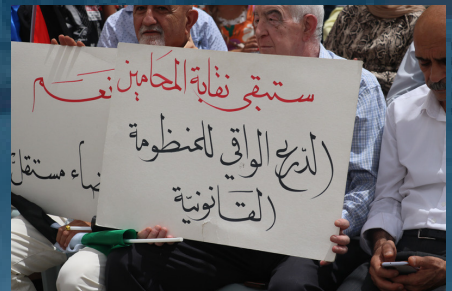 ستبقى نقابة المحامين
الدرع الواقي للمنظومة
القانونيّة
نعم
ضاء مستقل